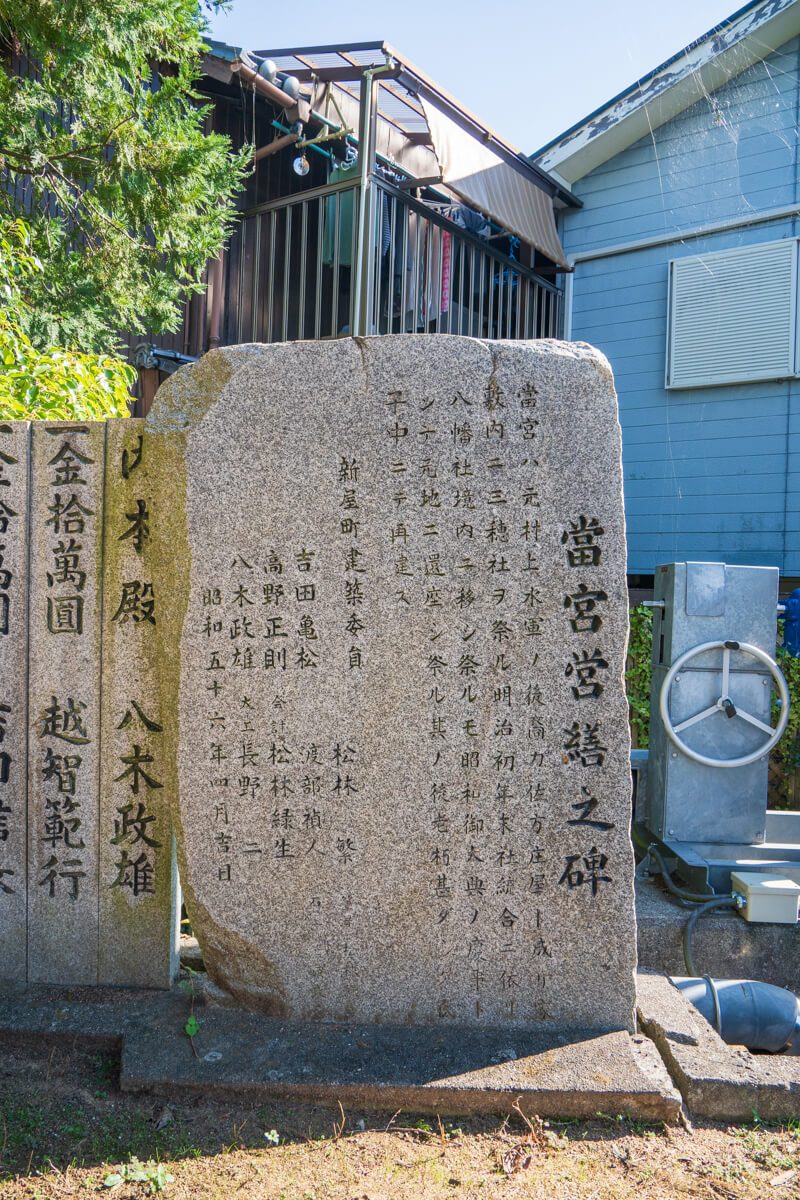 當宮営繕之碑
當宮ハ元村上水軍ノ後裔力佐方庄屋ト成リ家
敷内ニ三穂社ヲ祭ル明治初年末社統合ニ依リ
八幡社境内ニ移シ祭ルモ昭和御大典ノ慶事ト
シテ元地ニ還座シ祭ル其ノ後老朽甚ダシク氏
子中ニテ再建ス
新屋町建築委員 松林 繁
吉田亀松 渡部禎人
高野正則 会計 松林緑生
八木政雄 大工 長野 二
昭和五十六年四月吉日
内本殿 八木政雄
一金拾萬圓 越智範行